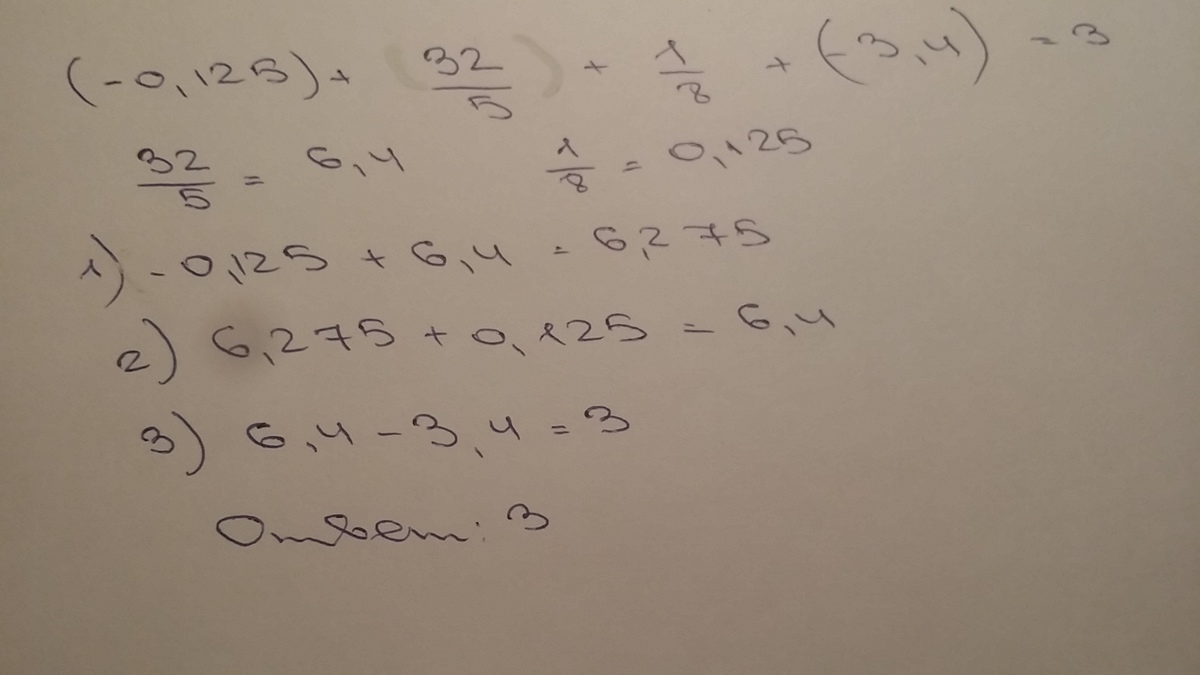 (-0,125) + (32/5) + 1/8 + (-3,4) = 3
32/5 = 6,4 1/8 = 0,125
1) -0,125 + 6,4 = 6,275
2) 6,275 + 0,125 = 6,4
3) 6,4 - 3,4 = 3
Ответ: 3